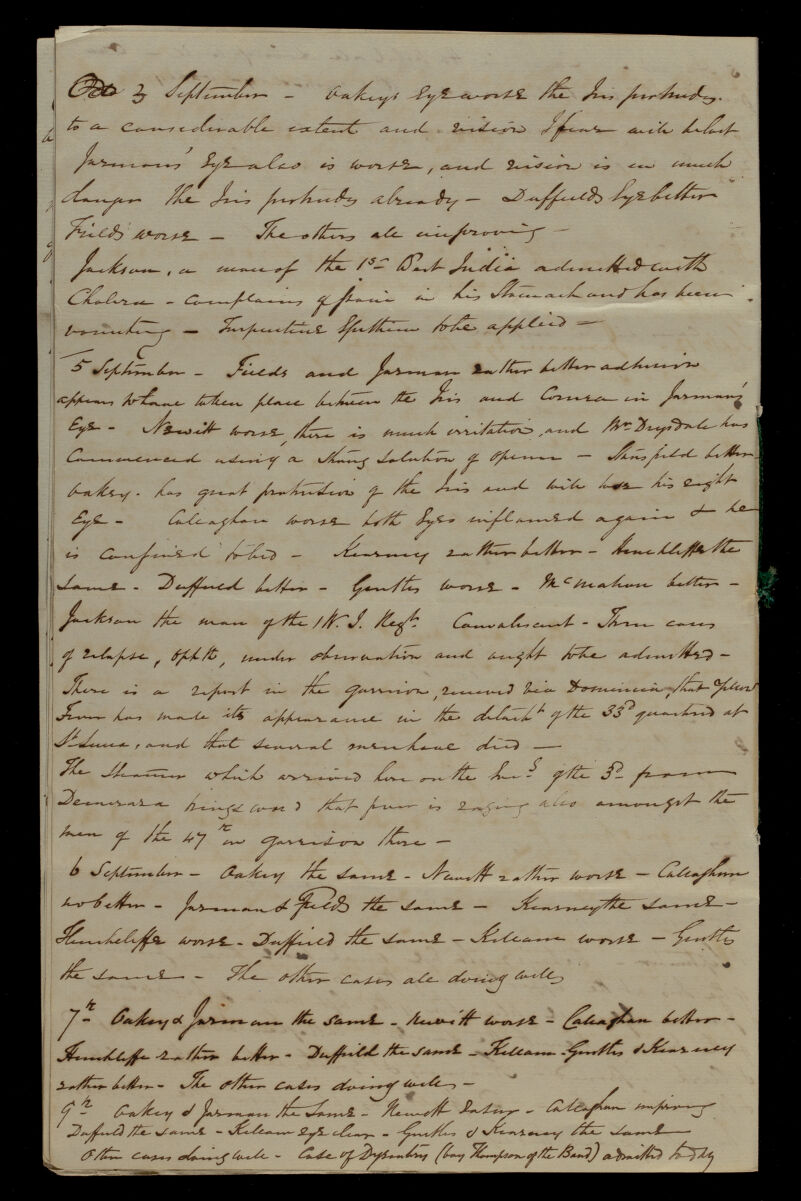 3 September - Oakeys Eye worse the Iris protrudes
to a considerable extent and vision I fear will be lost
Jarmans' Eye also is worse, and vision is in much
danger the Iris protrudes already - Duffields Eye better
Fields worse - The others all improving -
Jackson, a man of the 1st West India admitted with
Cholera - complains of pain in his Stomach and has been
vomiting - Turpentine Epithem to be applied -
5 September - Fields and Jarman rather better adhesion
appears to have taken place between the Iris and Cornea in Jarman's
Eye - Newitt worse, there is much irritation, and Mr Drysdale has
Commenced using a strong solution of opium - Stansfield better -
Oakey. has great protrusion of the Iris and will lose his right
Eye - Callaghan worse both Eyes inflamed again & he
is confined to bed - Kearney rather better - Hinchliffe the
same - Duffield better - Gentles worse - McMahon better -
Jackson the man of the 1 W. I. Regt. Convalescent - Three cases
of relapse, Ophth, under observation and ought to be admitted -
There is a report in the garrison, received via Dominica, that yellow
Fever has made its appearance in the detacht of the 33d quartered at
St Lucia, and that several men have died -
The Steamer which arrived here on the Eveg of the 3d from
Demerara brings word that fever is raging also amongst the
men of the 47th in garrison there -
6 September - Oakey the same - Newitt rather worse - Callaghan
no better - Jarman & Fields the same - Kearney the same -
Hinchcliffe worse - Duffield the same - Killeam worse - Gentles
the same - The other cases all doing well
7th Oakey & Jarman the same - Newitt worse - Calaghan better -
Hinchliffe rather better - Duffield the same - Killeam - Gentles & Kearney
rather better - The other cases doing well -
9th Oakey & Jarman the same - Newett easier - Callaghan improving
Duffield the same - Killeam eye clear - Gentles & Kearney the same
Other cases doing well - Case of Dysentery (boy Thompson of the Band) admitted to day